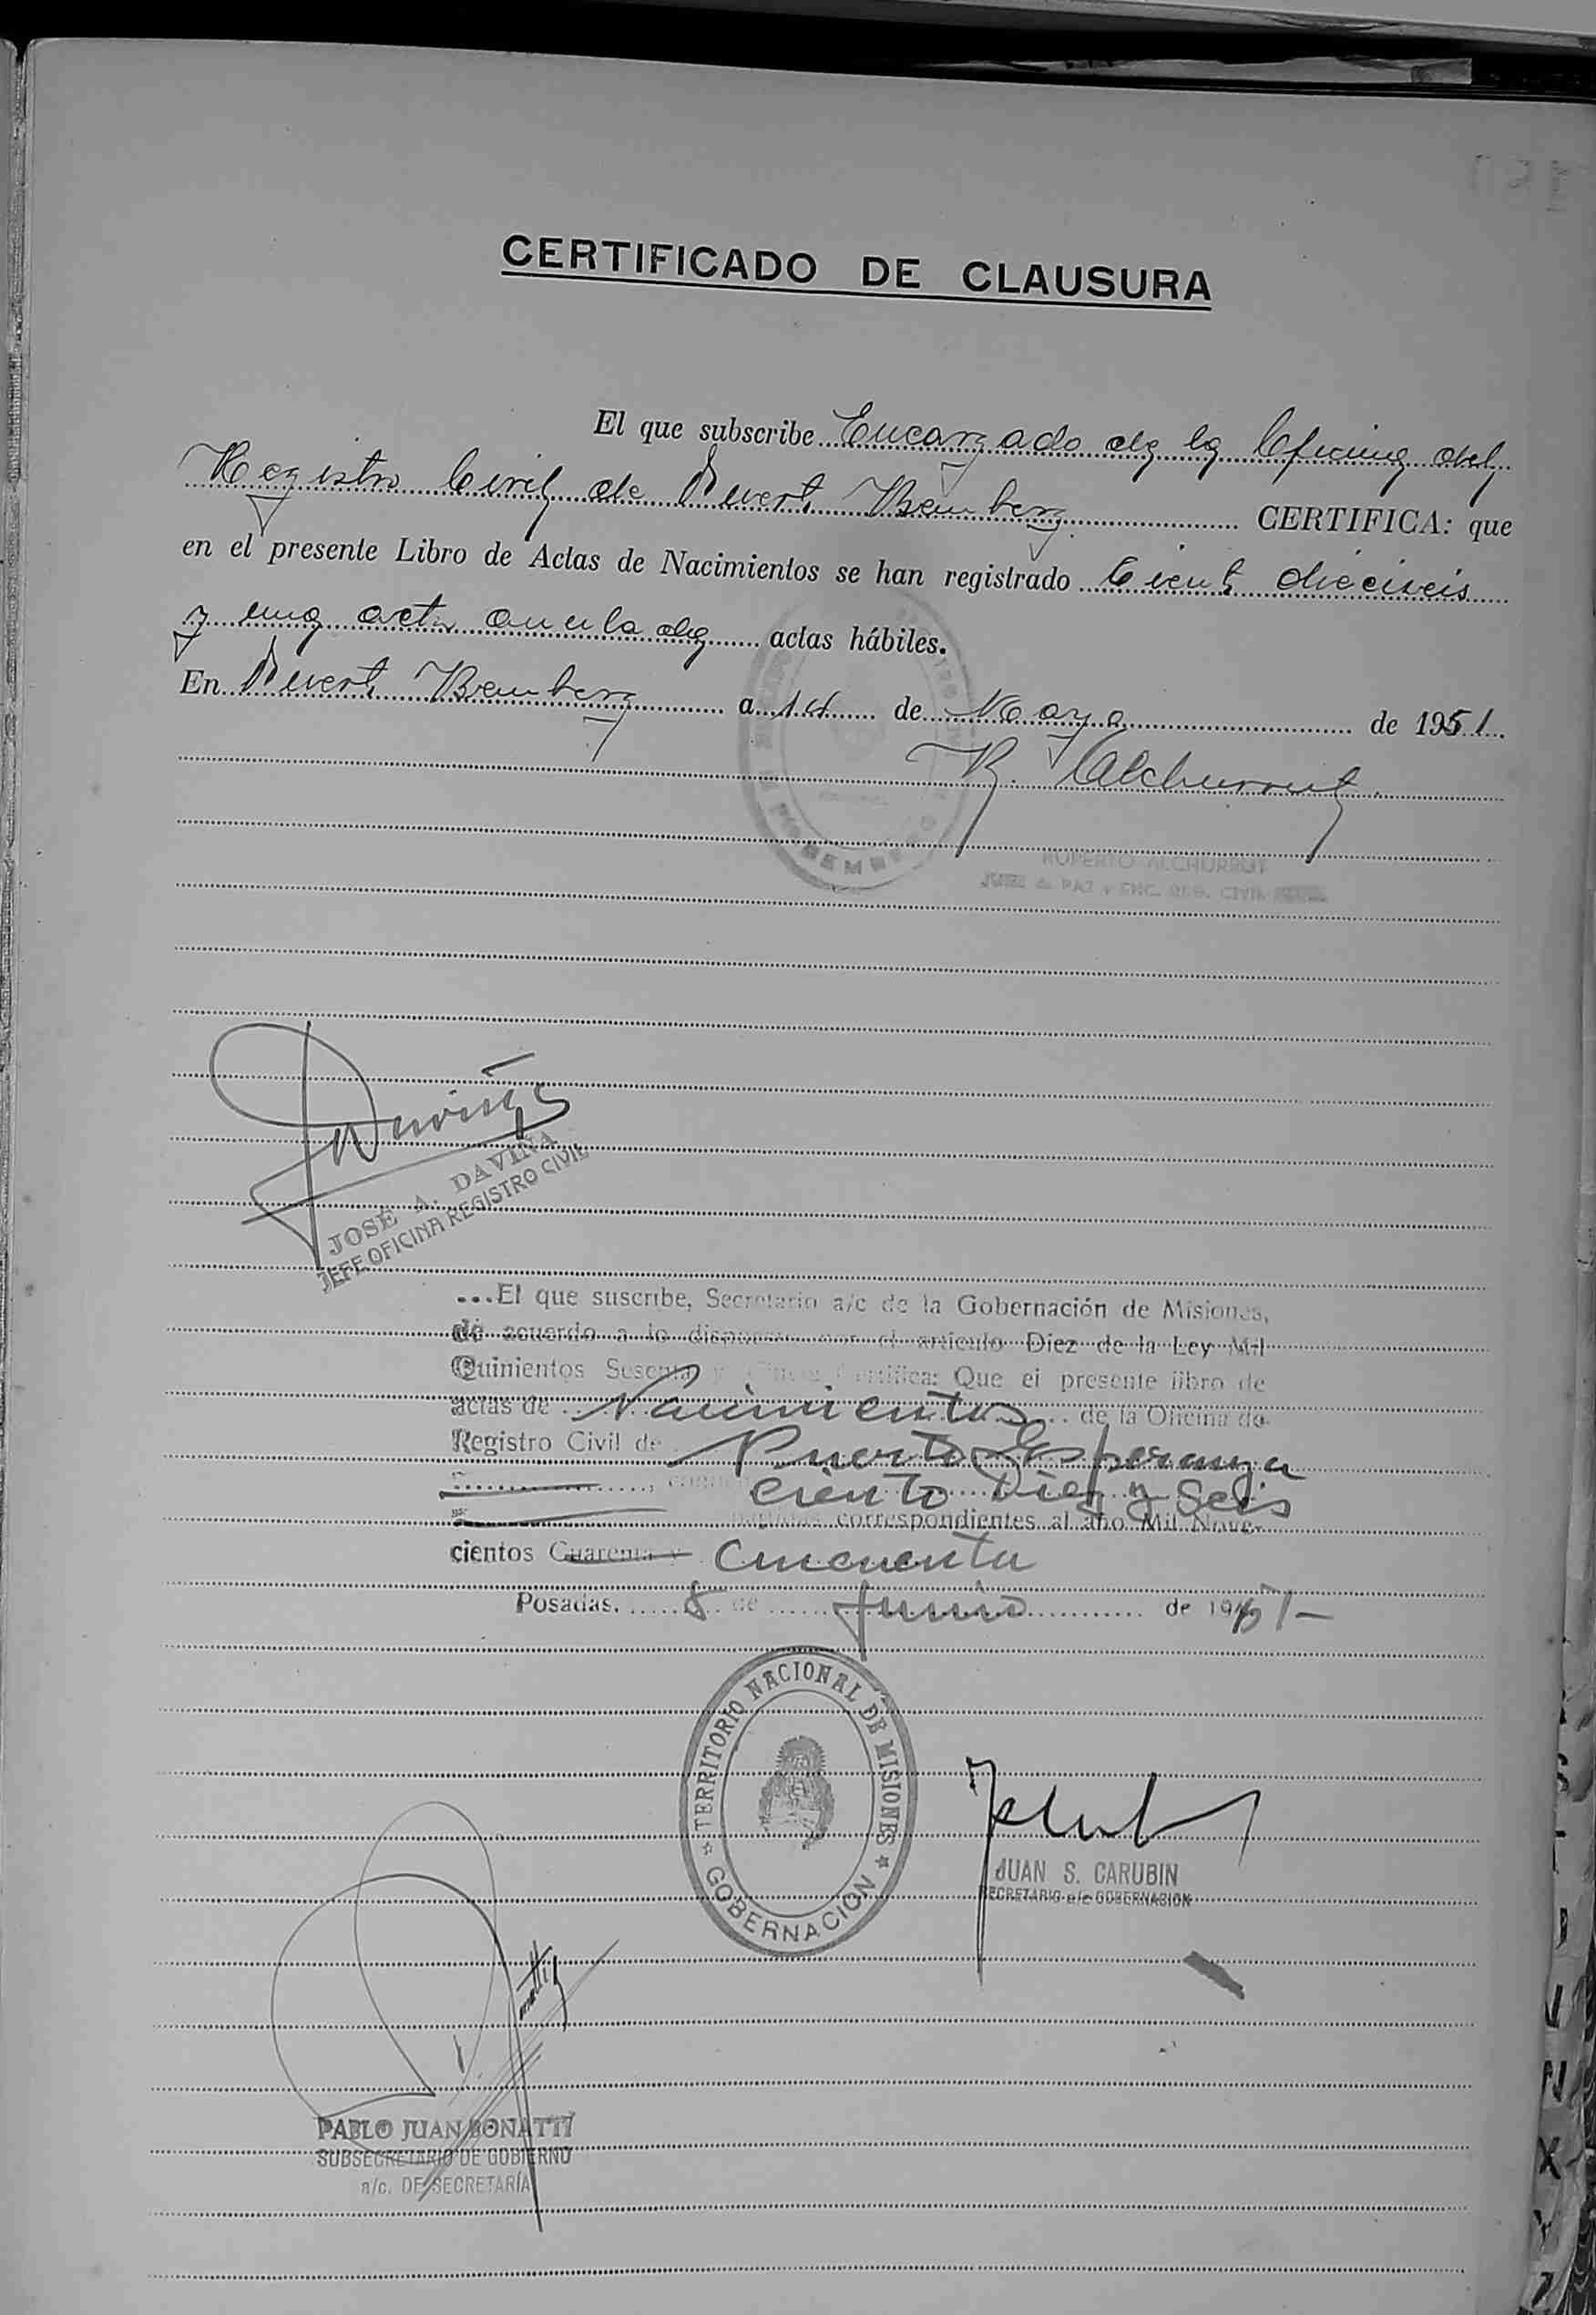 CERTIFICADO DE CLAUSURA
El que subscribe Encargado de la Oficina del
Registro Civil de Puerto Bemberg CERTIFICA: que
en el presente Libro de Actas de Nacimientos se han registrado Ciento dieciseis
y una acta anulada actas hábiles.
En Puerto Bemberg a 14 de Mayo de 1951
R. Alchurrut
RUPERTO ALCHURRUT
JUEZ de PAZ y ENC. REG. CIVIL
BEMBERG
JOSÉ A. DAVIÑA
JEFE OFICINA REGISTRO CIVIL
...El que suscribe, Secretario a/c de la Gobernación de Misiones,
de acuerdo a lo dispuesto por el artículo Diez de la Ley Mil
Quinientos Sesenta y Cinco, Certifica: Que el presente libro de
actas de Nacimientos de la Oficina de
Registro Civil de Puerto Esperanza
Ciento Diez y Seis
correspondientes al año Mil Nove-
cientos Cuarenta y Cincuenta
Posadas, 8 de Junio de 1951
TERRITORIO NACIONAL DE MISIONES
GOBERNACION
JUAN S. CARUBIN
SECRETARIO a/c GOBERNACION
PABLO JUAN BONATTI
SUBSECRETARIO DE GOBIERNO
a/c. DE SECRETARÍA